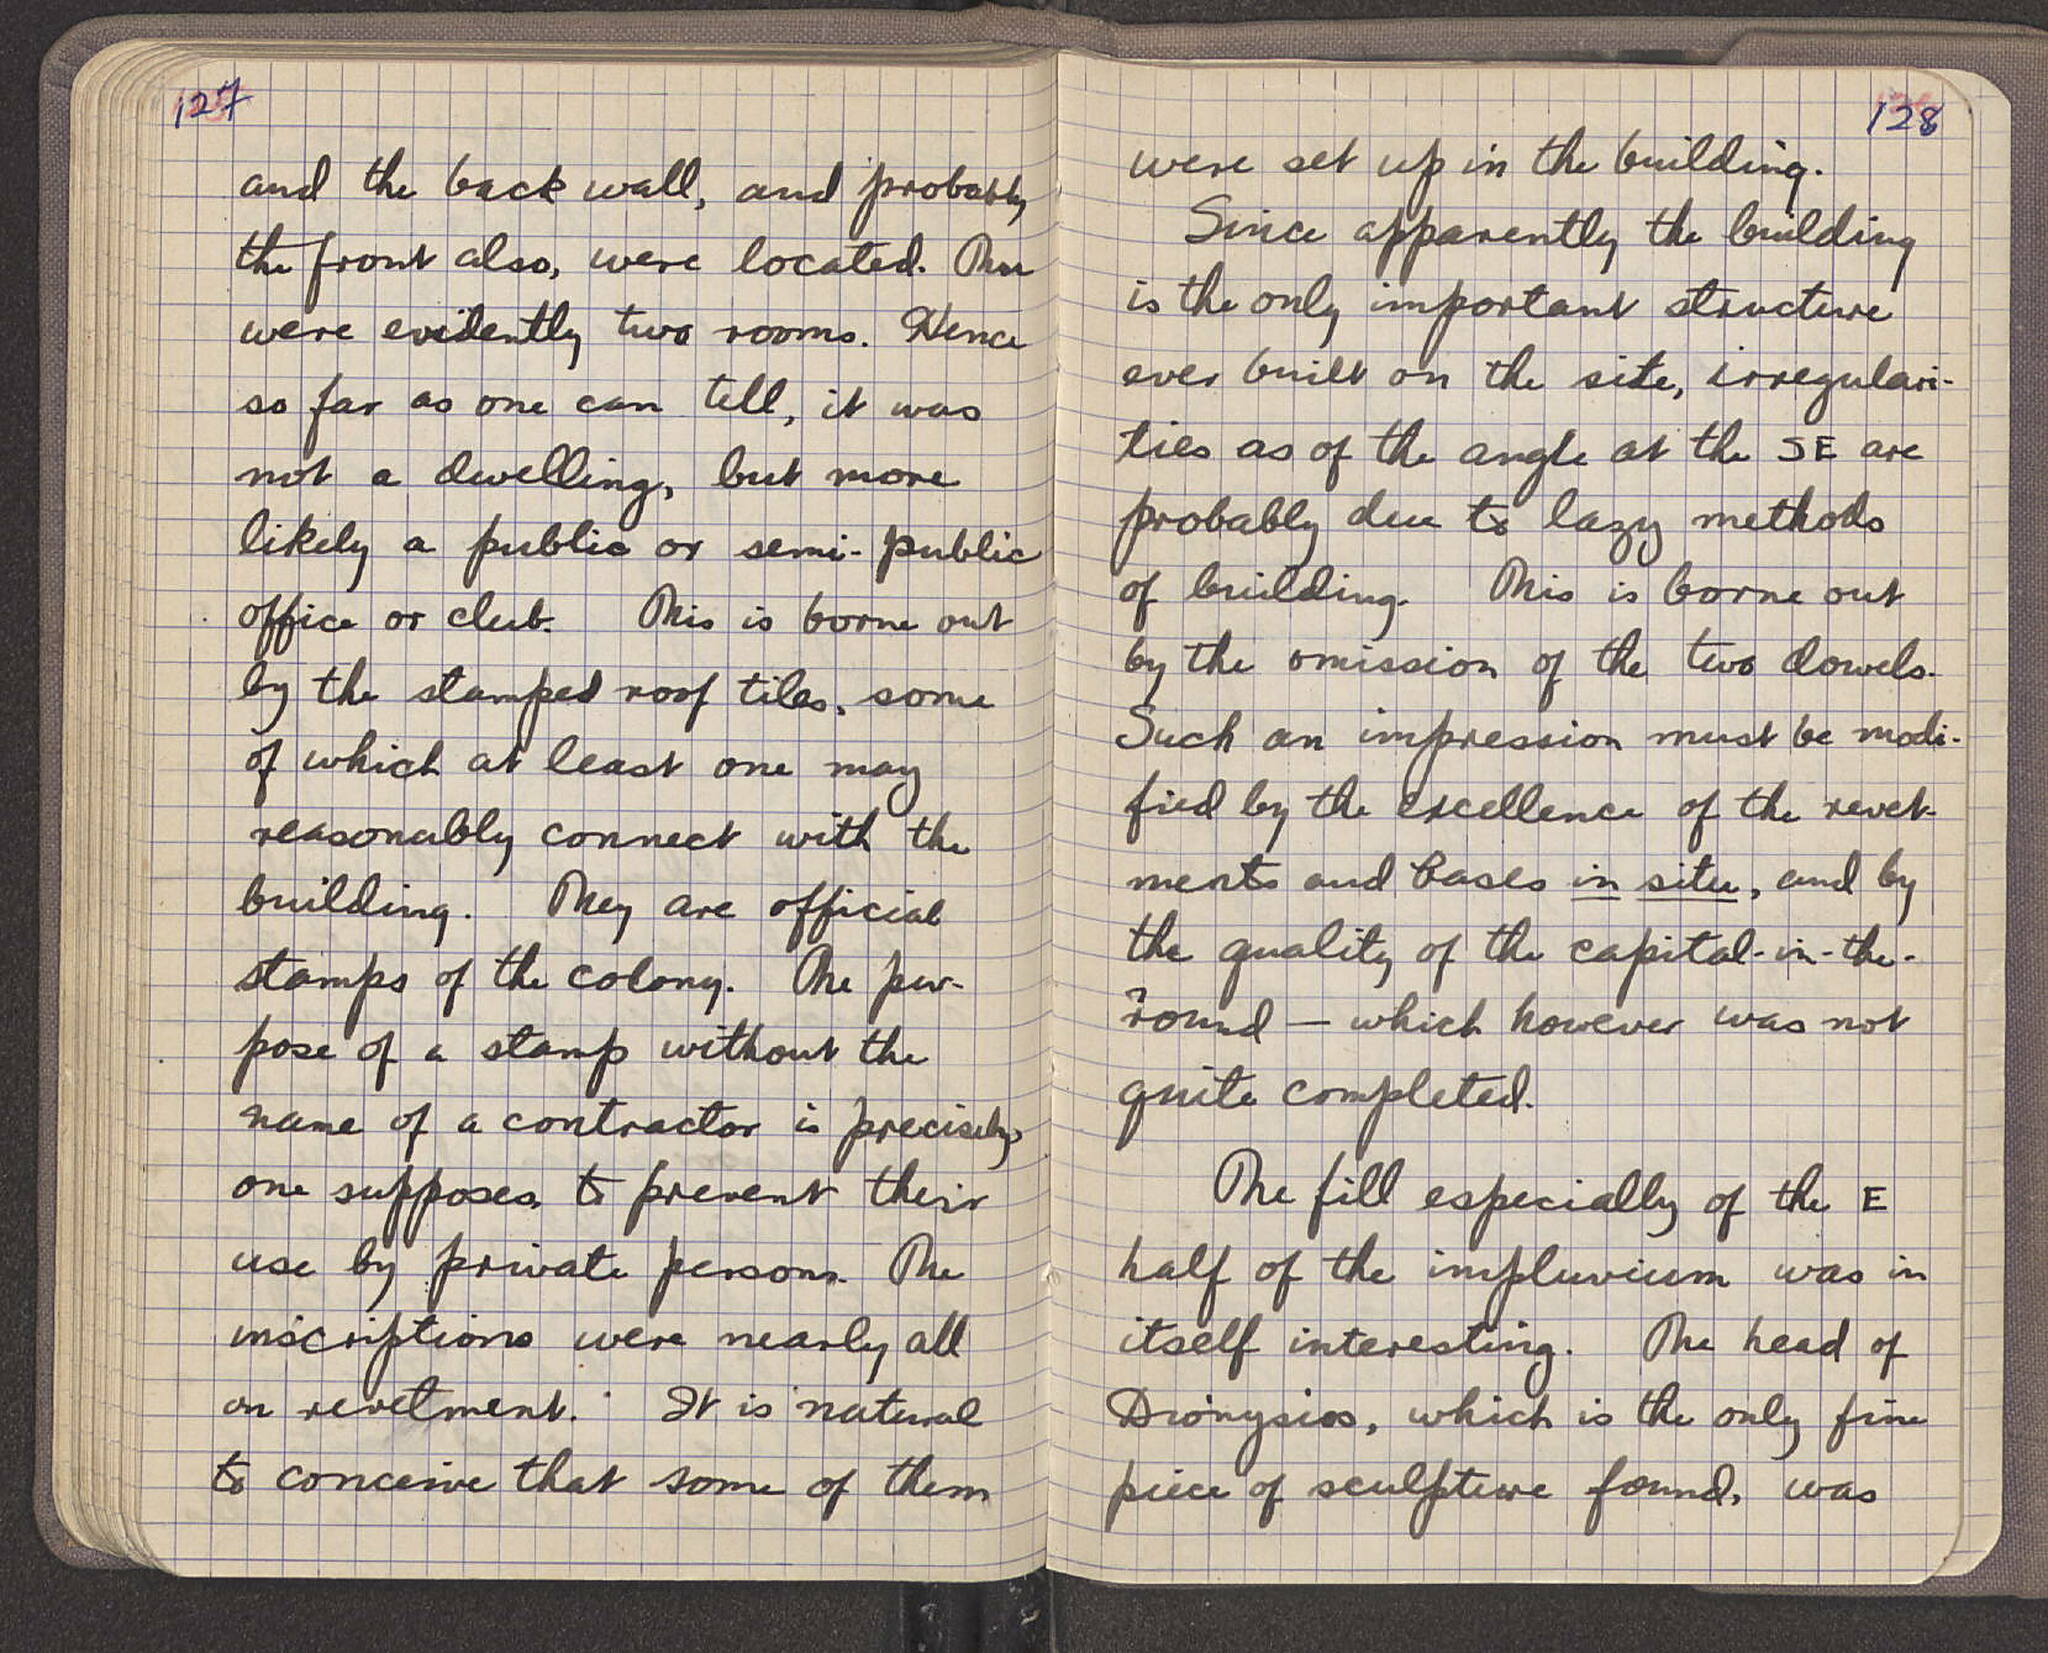 127
and the back wall, and probably
the front also, were located. There
were evidently two rooms. Hence
so far as one can tell, it was
not a dwelling, but more
likely a public or semi-public
office or club. This is borne out
by the stamped roof tiles, some
of which at least one may
reasonably connect with the
building. They are official
stamps of the colony. The pur-
pose of a stamp without the
name of a contractor is precisely,
one supposes, to prevent their
use by private persons. The
inscriptions were nearly all
on revetment. It is natural
to conceive that some of them
128
were set up in the building.
Since apparently the building
is the only important structure
ever built on the site, irregulari-
ties as of the angle at the SE are
probably due to lazy methods
of building. This is borne out
by the omission of the two dowels.
Such an impression must be modi-
fied by the excellence of the revet-
ments and bases in situ, and by
the quality of the capital-in-the-
round — which however was not
quite completed.
The fill especially of the E
half of the impluvium was in
itself interesting. The head of
Dionysios, which is the only fine
piece of sculpture found, was